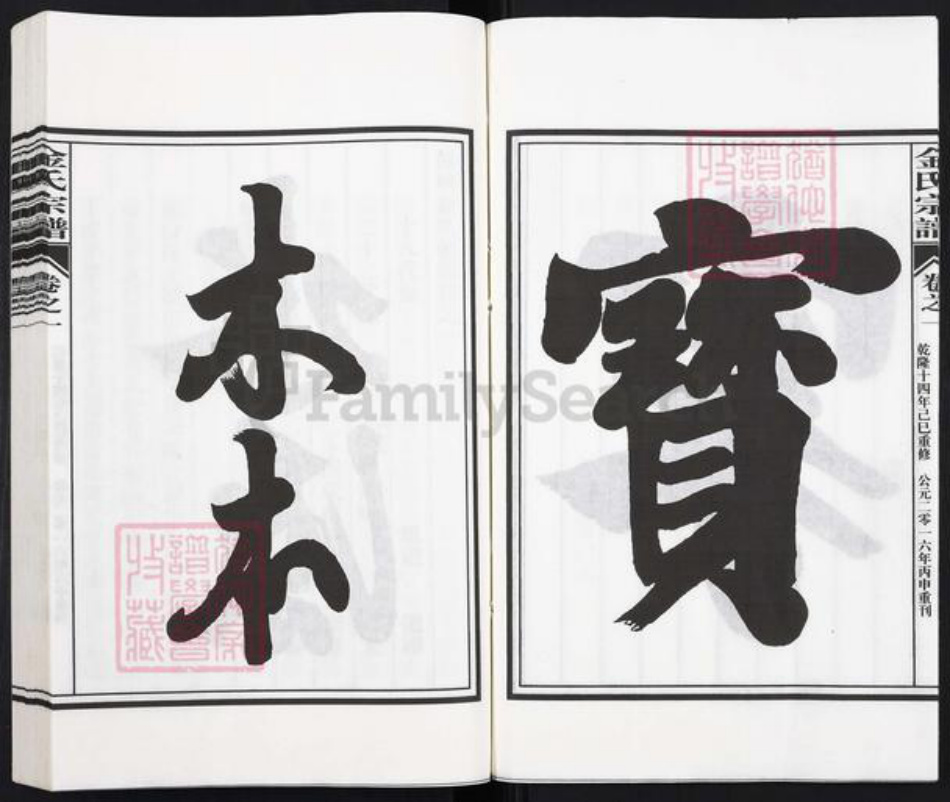 寶
金氏宗譜
卷之一
乾隆十四年己巳重修 公元二零一六年丙申重刊
木本
金氏宗譜
卷之一
FamilySearch